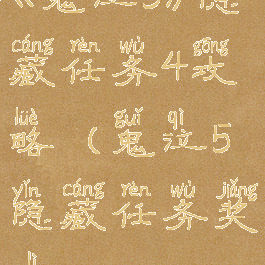 《鬼泣5》隐
cáng rèn wù gōng
藏任务4攻
lüè guǐ qì
略（鬼泣5
yǐn cáng rèn wù jiǎng
隐藏任务奖
lì